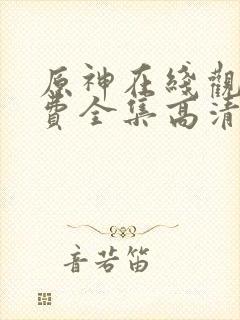 原神在綫觀
費全集高清
音若笛